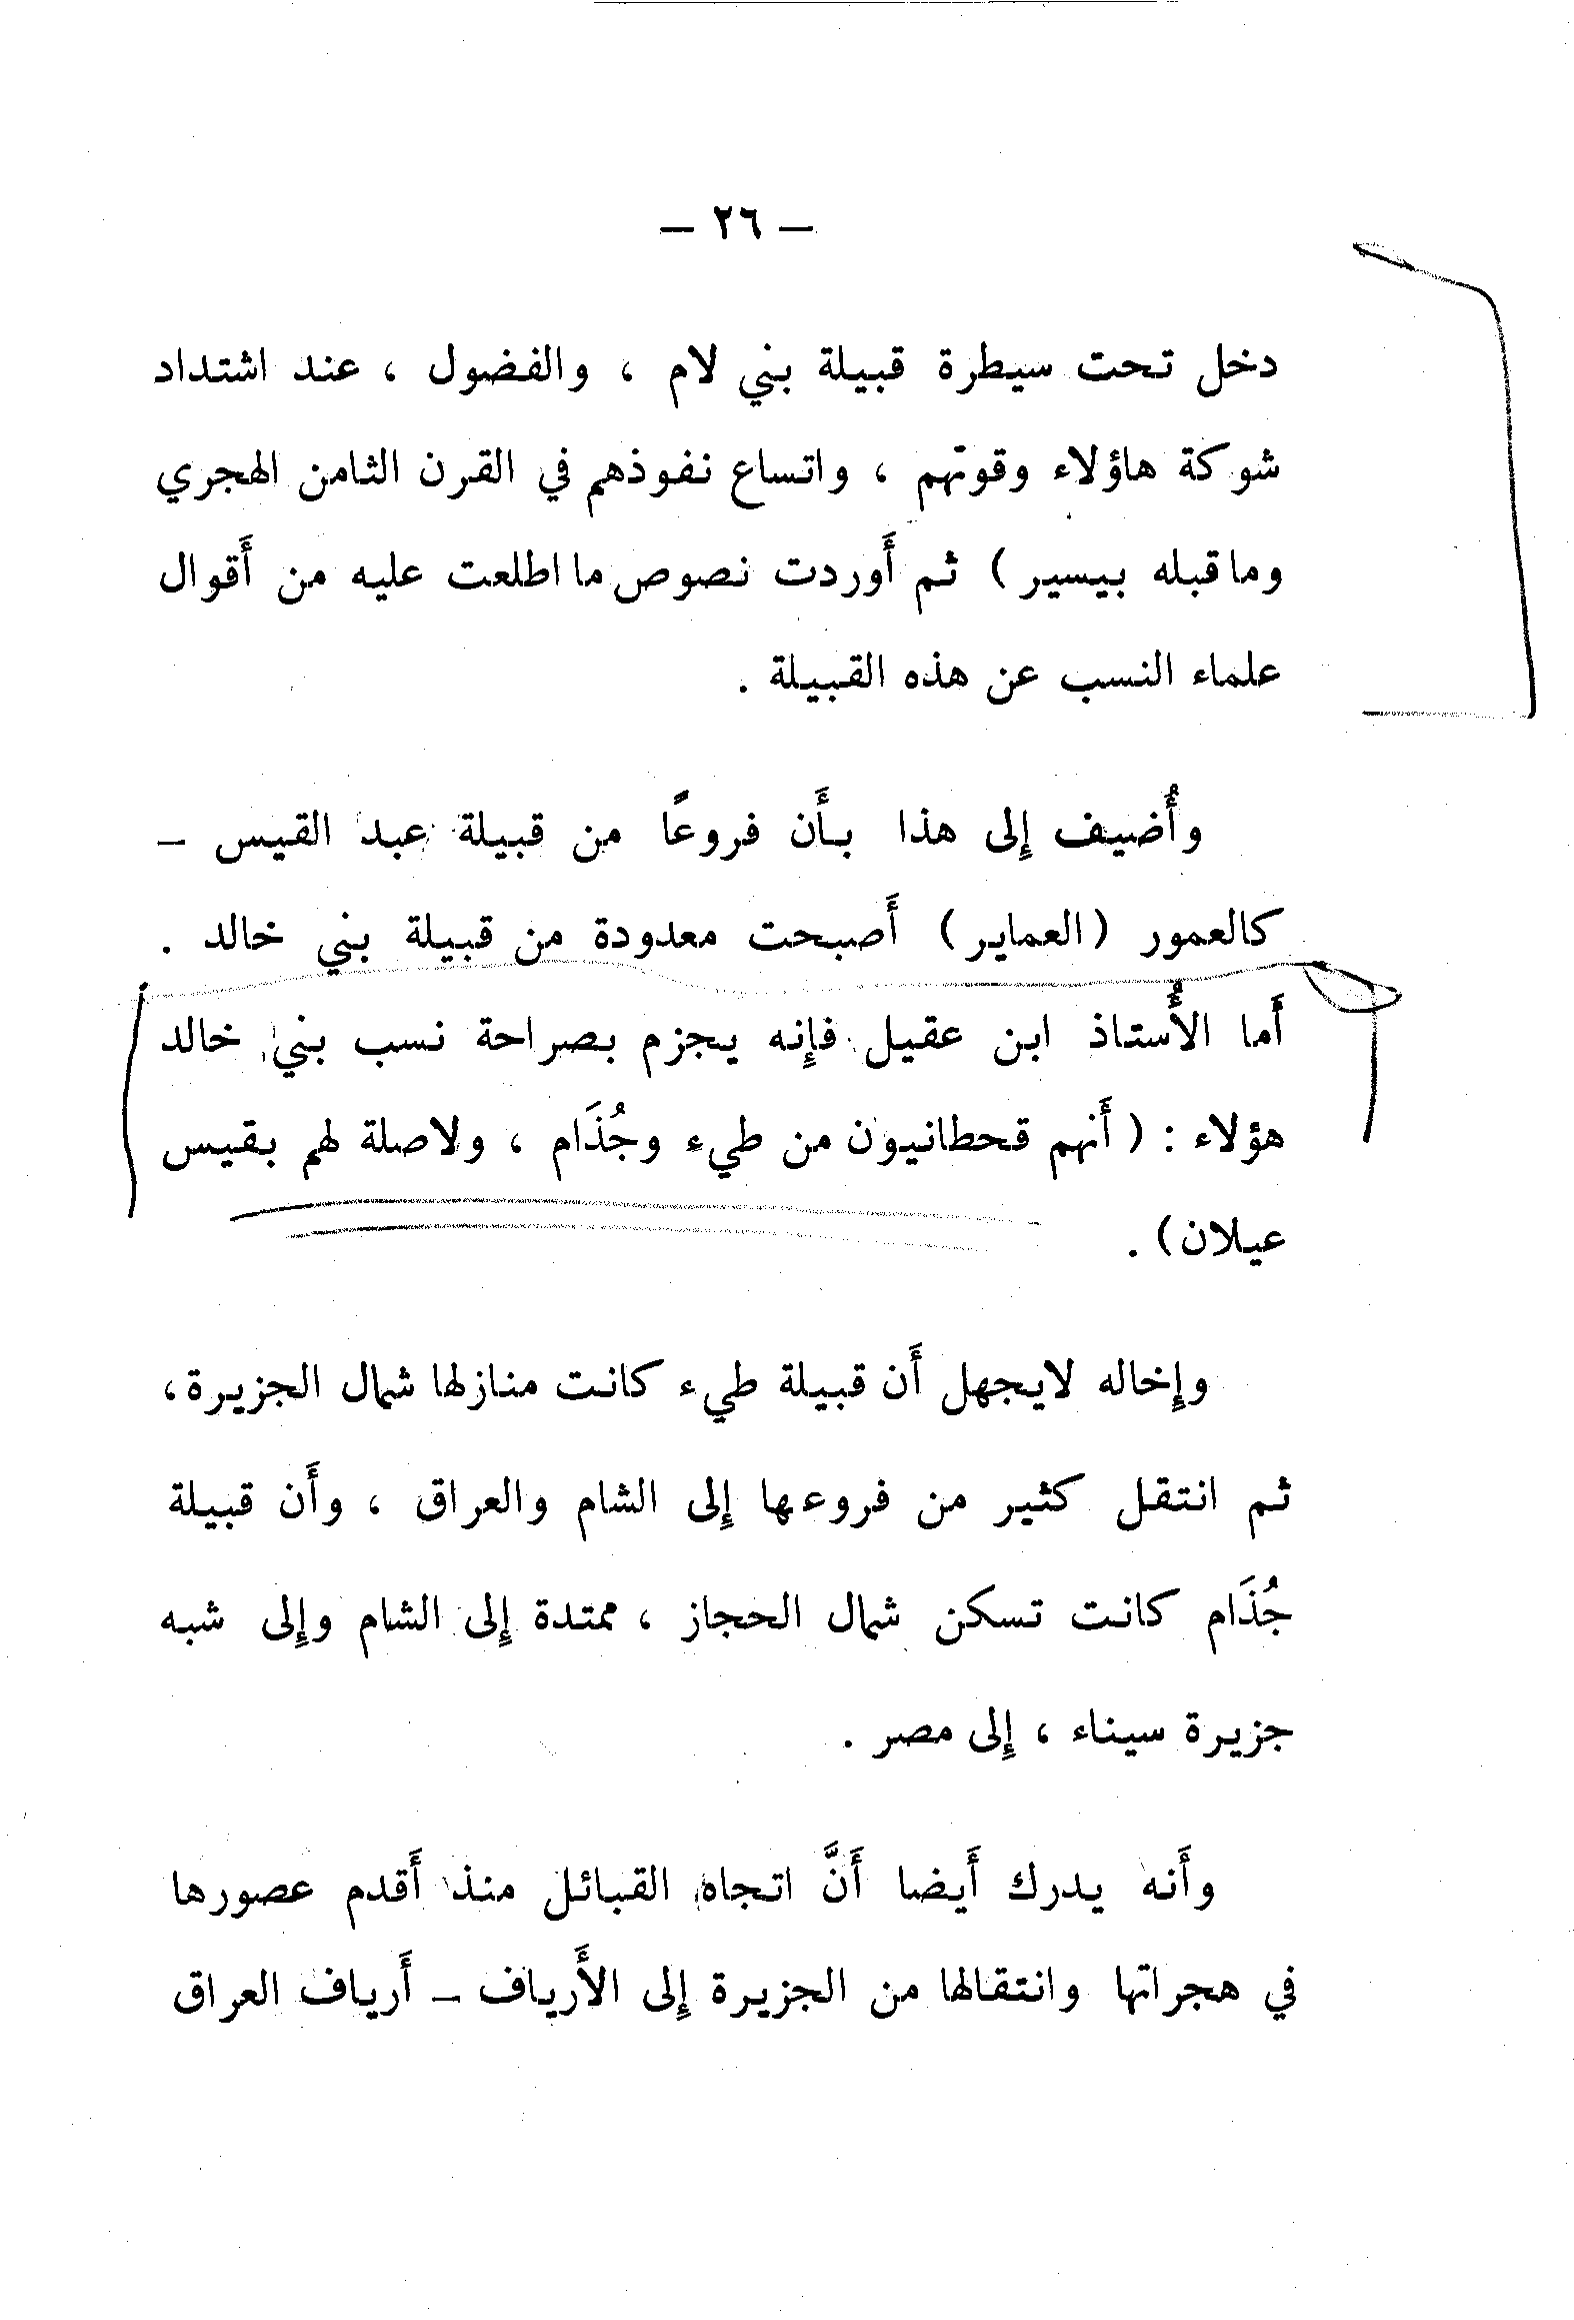 – ٢٦ –
دخل تحت سيطرة قبيلة بني لام ، والفضول ، عند اشتداد
شوكة هاؤلاء وقوتهم ، واتساع نفوذهم في القرن الثامن الهجري
وماقبله بيسير) ثم أَوردت نصوص ما اطلعت عليه من أَقوال
علماء النسب عن هذه القبيلة .
وأُضيف إِلى هذا بأَن فروعًا من قبيلة عبد القيس –
كالعمور (العماير) أَصبحت معدودة من قبيلة بني خالد .
أَما الأُستاذ ابن عقيل فإِنه يجزم بصراحة نسب بني خالد
هؤلاء : (أَنهم قحطانيون من طيء وجُذَام ، ولاصلة لهم بقيس
عيلان) .
وإِخاله لايجهل أَن قبيلة طيء كانت منازلها شمال الجزيرة،
ثم انتقل كثير من فروعها إِلى الشام والعراق ، وأَن قبيلة
جُذَام كانت تسكن شمال الحجاز ، ممتدة إِلى الشام وإِلى شبه
جزيرة سيناء ، إِلى مصر .
وأَنه يدرك أَيضا أَنَّ اتجاه القبائل منذ أَقدم عصورها
في هجراتها وانتقالها من الجزيرة إِلى الأَرياف – أَرياف العراق